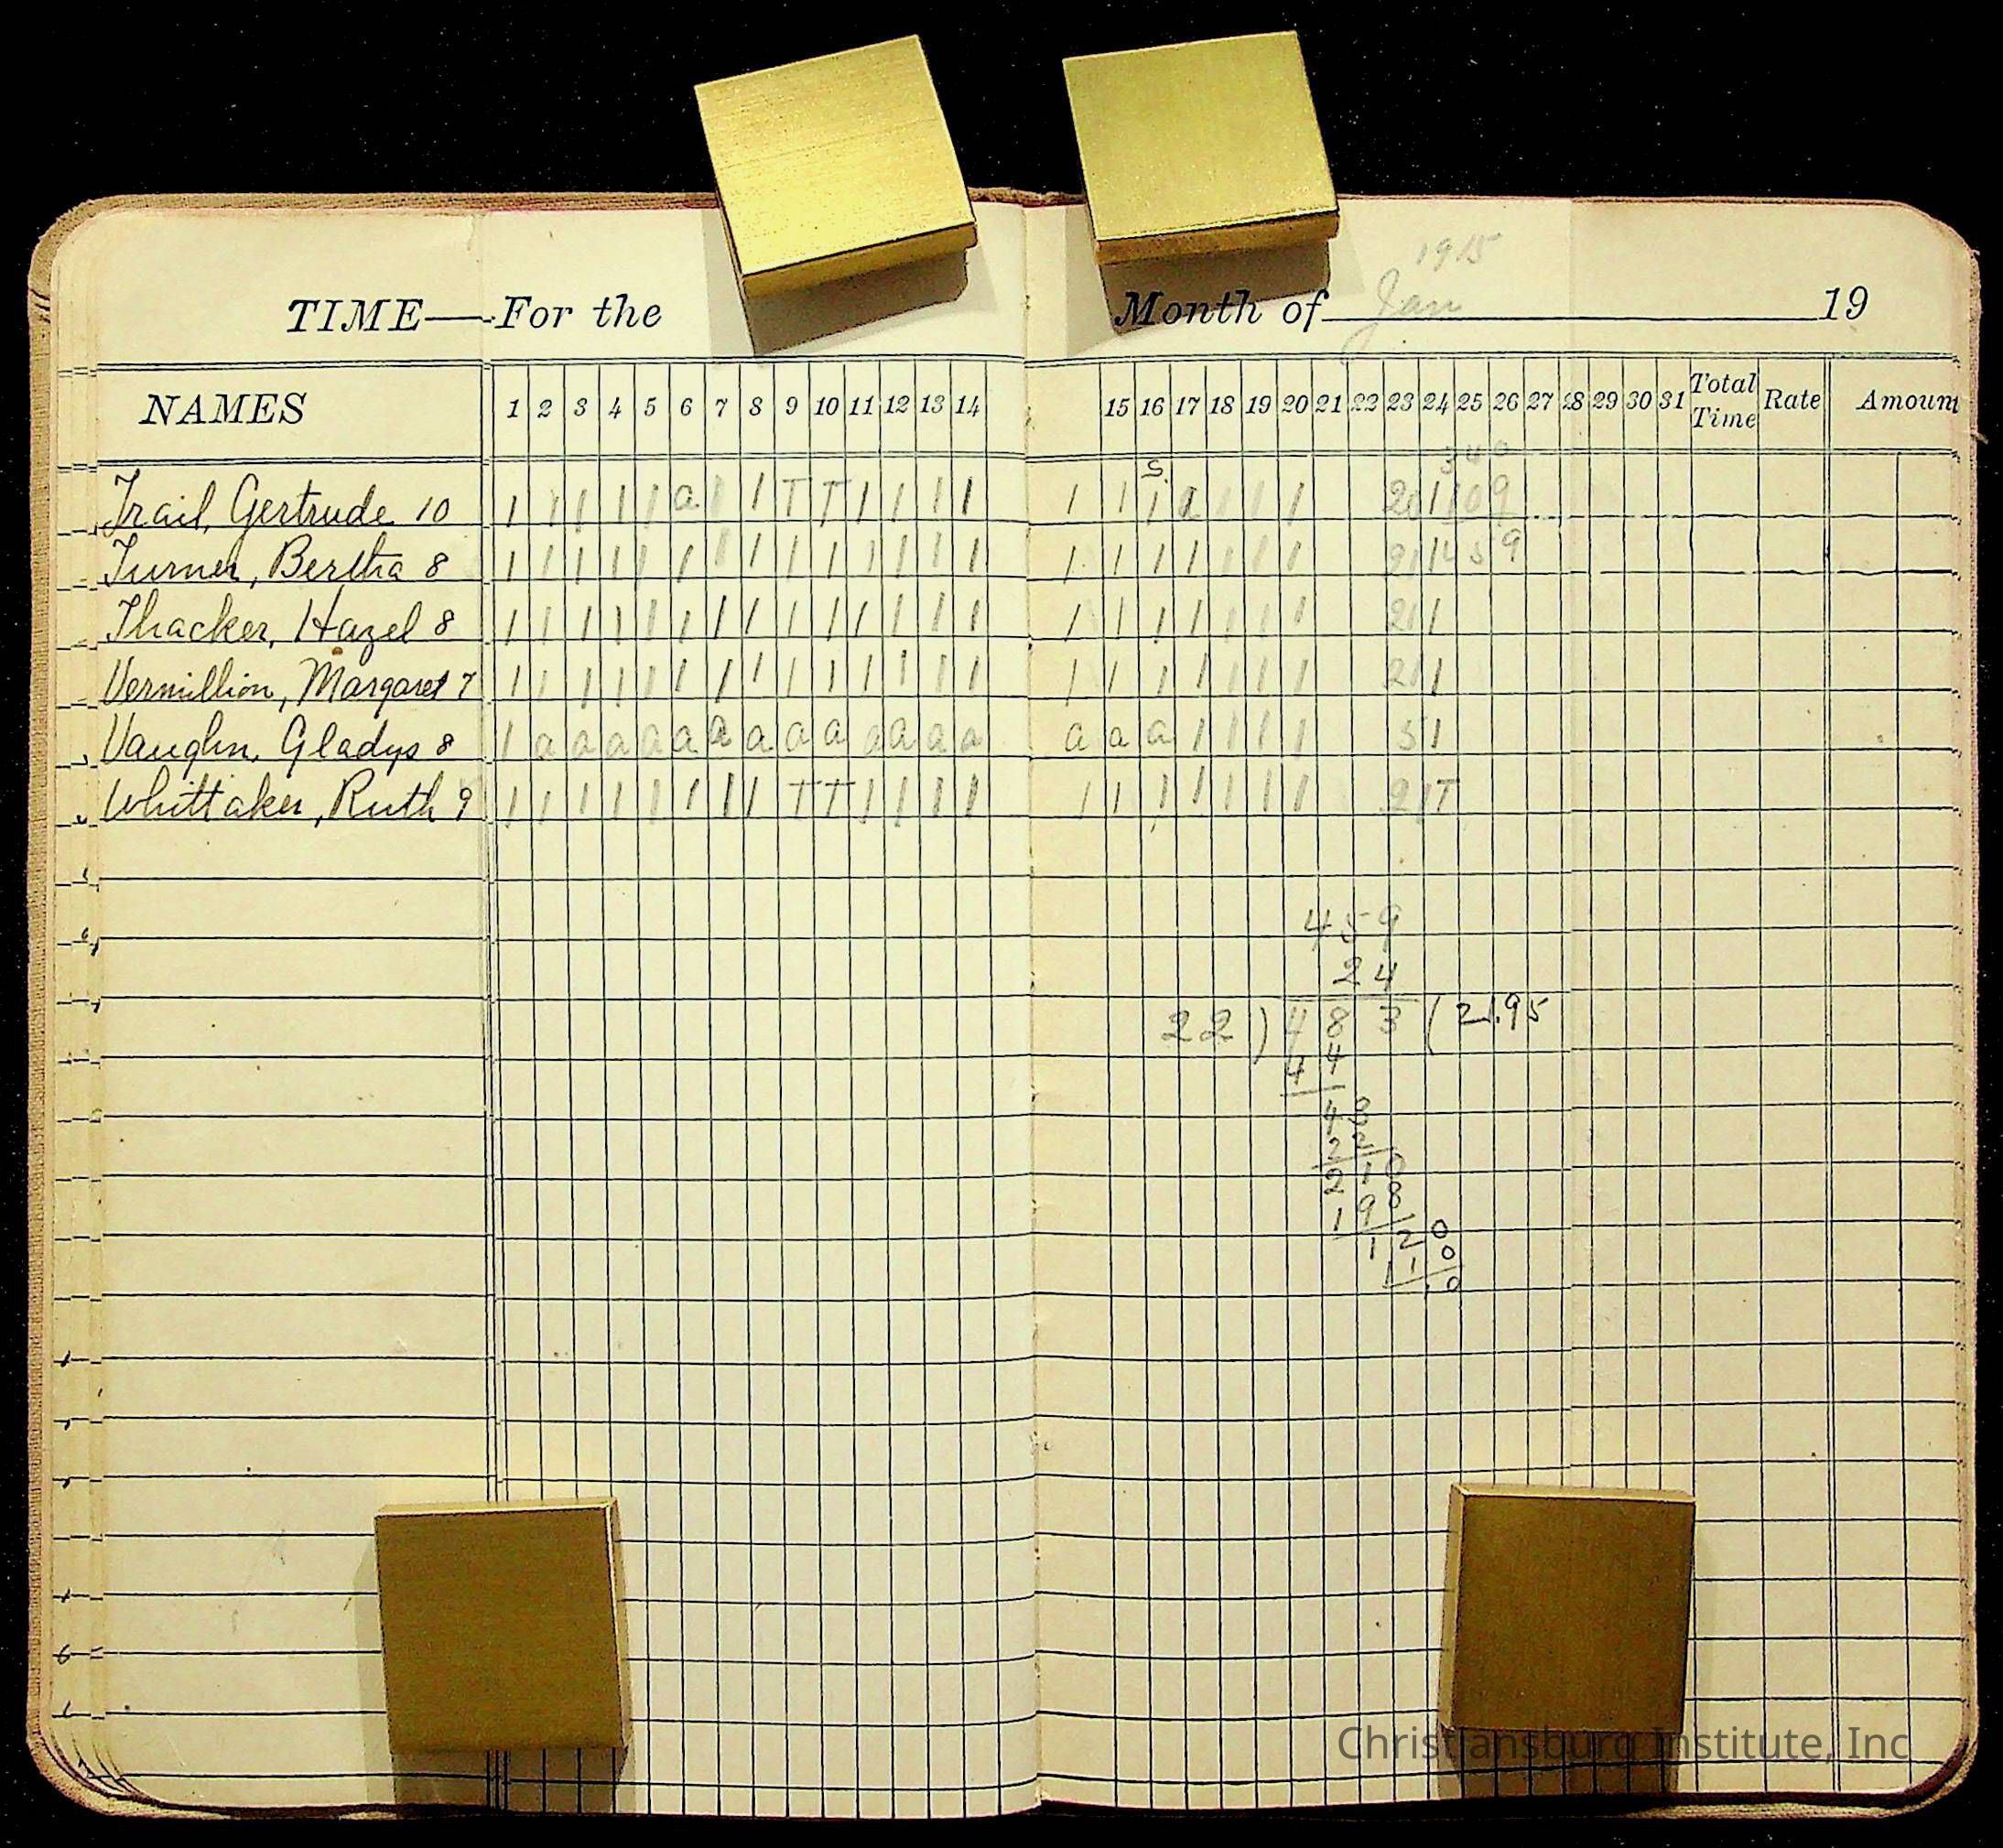 1915
TIME—For the Month of Jan 19
NAMES 1 2 3 4 5 6 7 8 9 10 11 12 13 14 15 16 17 18 19 20 21 22 23 24 25 26 27 28 29 30 31 Total Time Rate Amount
340
Trail, Gertrude 10 1 1 1 1 1 a 1 1 T T 1 1 1 1 1 1 1 a 1 1 1 20 1 109
Turner, Bertha 8 1 1 1 1 1 1 1 1 1 1 1 1 1 1 1 1 1 1 1 1 1 21 1 459
Thacker, Hazel 8 1 1 1 1 1 1 1 1 1 1 1 1 1 1 1 1 1 1 1 1 1 21 1
Vermillion, Margaret 7 1 1 1 1 1 1 1 1 1 1 1 1 1 1 1 1 1 1 1 1 1 21 1
Vaughn, Gladys 8 1 a a a a a a a a a a a a a a a a 1 1 1 1 5 1
Whittaker, Ruth 9 1 1 1 1 1 1 1 1 T T 1 1 1 1 1 1 1 1 1 1 1 21 T
459
24
22 ) 483 ( 21.95
44
43
22
210
198
120
110
Christiansburg Institute, Inc